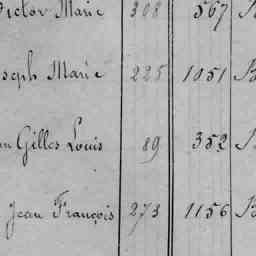 Victor Marie 308 567 B
oseph Marie 225 1051 B
an Gilles Louis 89 352 B
Jean François 273 1156 B